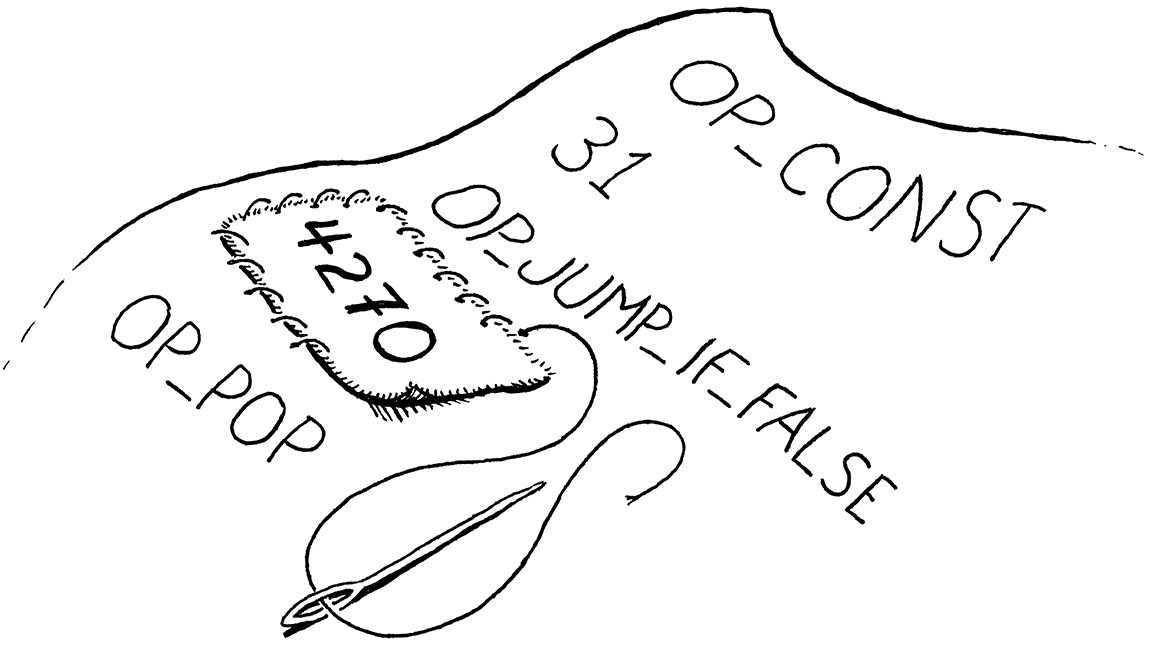 OP_CONST
31
OP_JUMP_IF_FALSE
4270
OP_POP